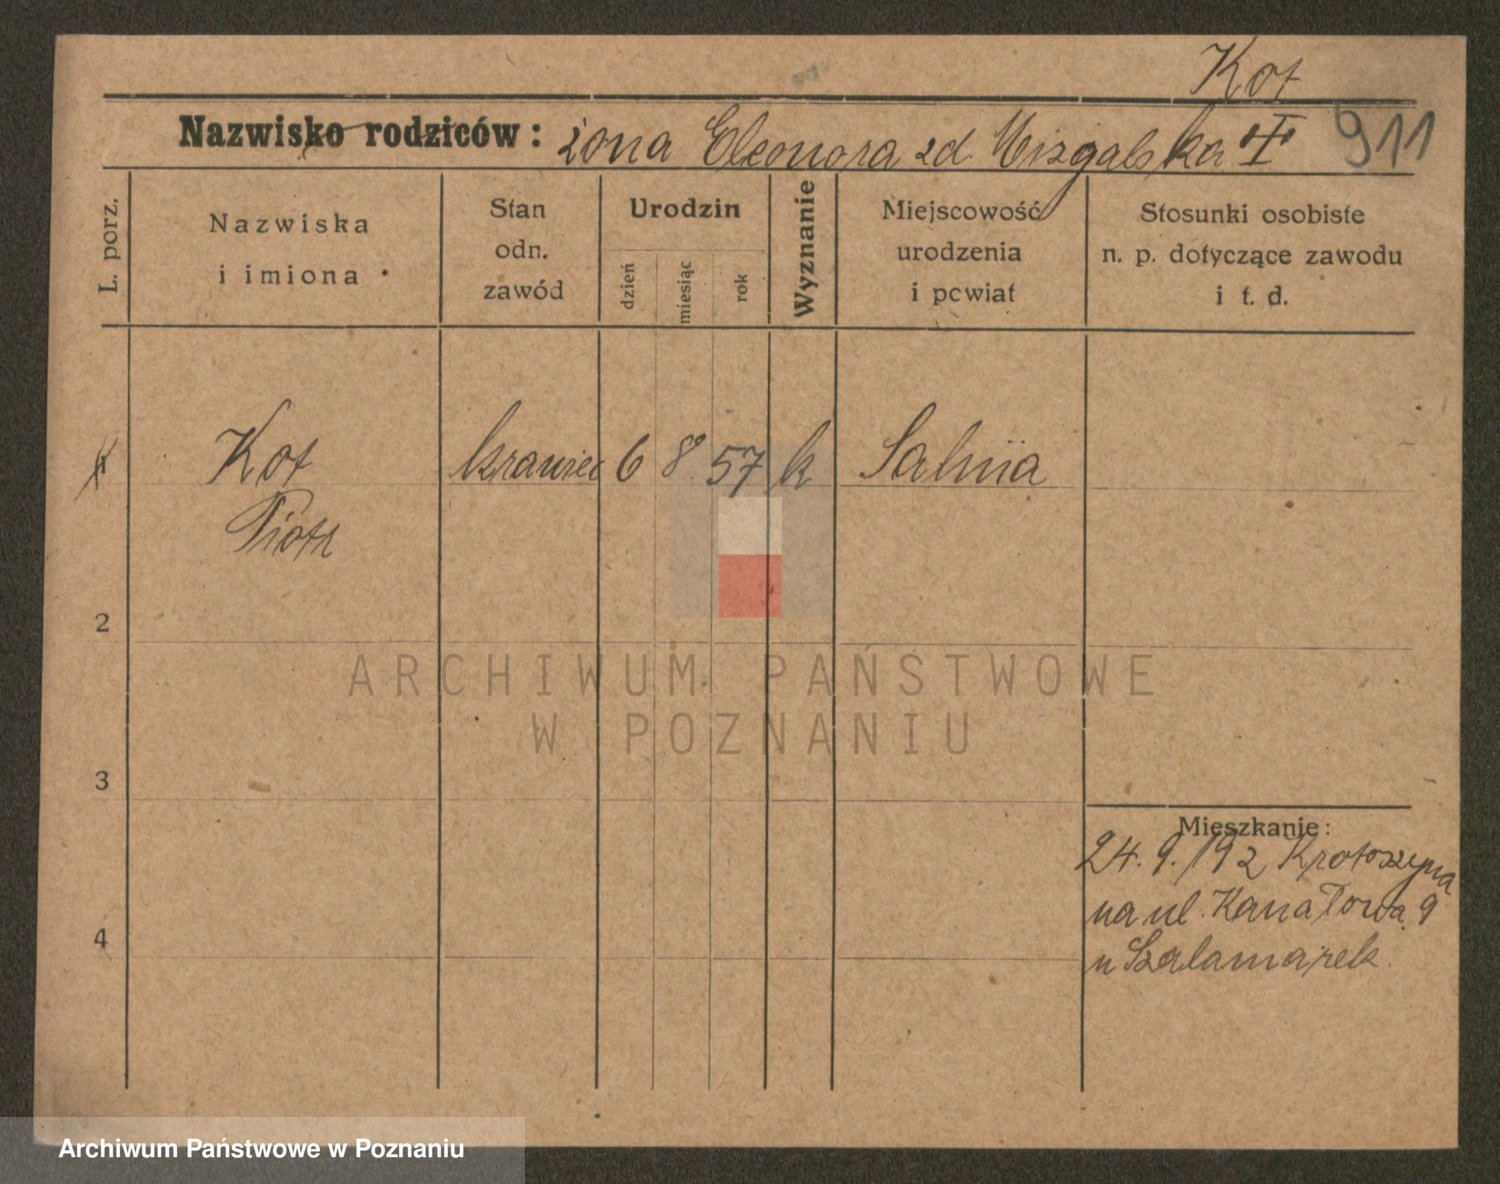 Kot
Nazwisko rodziców: żona Eleonora zd. Mizgalska 911
L. porz.
Nazwiska
i imiona
Stan
odn.
zawód
Urodzin
dzień
miesiąc
rok
Wyznanie
Miejscowość
urodzenia
i powiat
Stosunki osobiste
n. p. dotyczące zawodu
i t. d.
1 Kot krawiec 6 8 57 k Salnia
Piotr
2
3
4
Mieszkanie:
24.9.192 Krotoszyna
na ul. Kanałowa 9
u Szalamarek.
ARCHIWUM PAŃSTWOWE
W POZNANIU
Archiwum Państwowe w Poznaniu